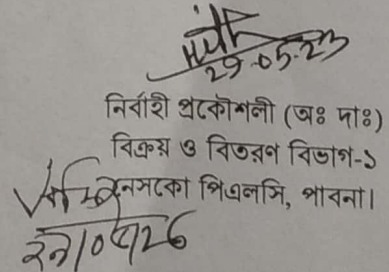 29-05-23
নির্বাহী প্রকৌশলী (অঃ দাঃ)
বিক্রয় ও বিতরণ বিভাগ-১
নেসকো পিএলসি, পাবনা।